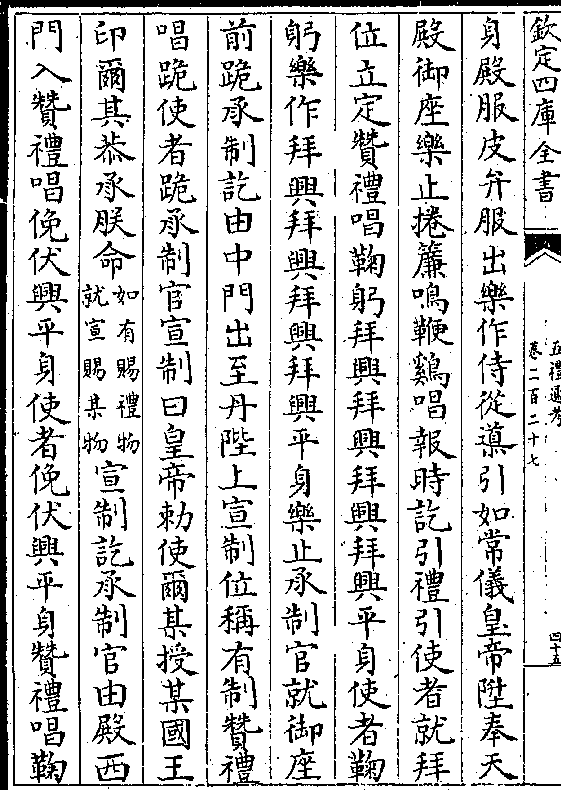 欽定四庫全書
五禮通考
卷二百二十七
四十五
身殿服皮弁服出樂作侍從導引如常儀皇帝陞奉天
殿御座樂止捲簾鳴鞭鷄唱報時訖引禮引使者就拜
位立定贊禮唱鞠躬拜興拜興拜興拜興平身使者鞠
躬樂作拜興拜興拜興拜興平身樂止承制官就御座
前跪承制訖由中門出至丹陛上宣制位稱有制贊禮
唱跪使者跪承制官宣制曰皇帝勅使爾某授某國王
印爾其恭承朕命如有賜禮物就宣賜某物宣制訖承制官由殿西
門入贊禮唱俛伏興平身使者俛伏興平身贊禮唱鞠